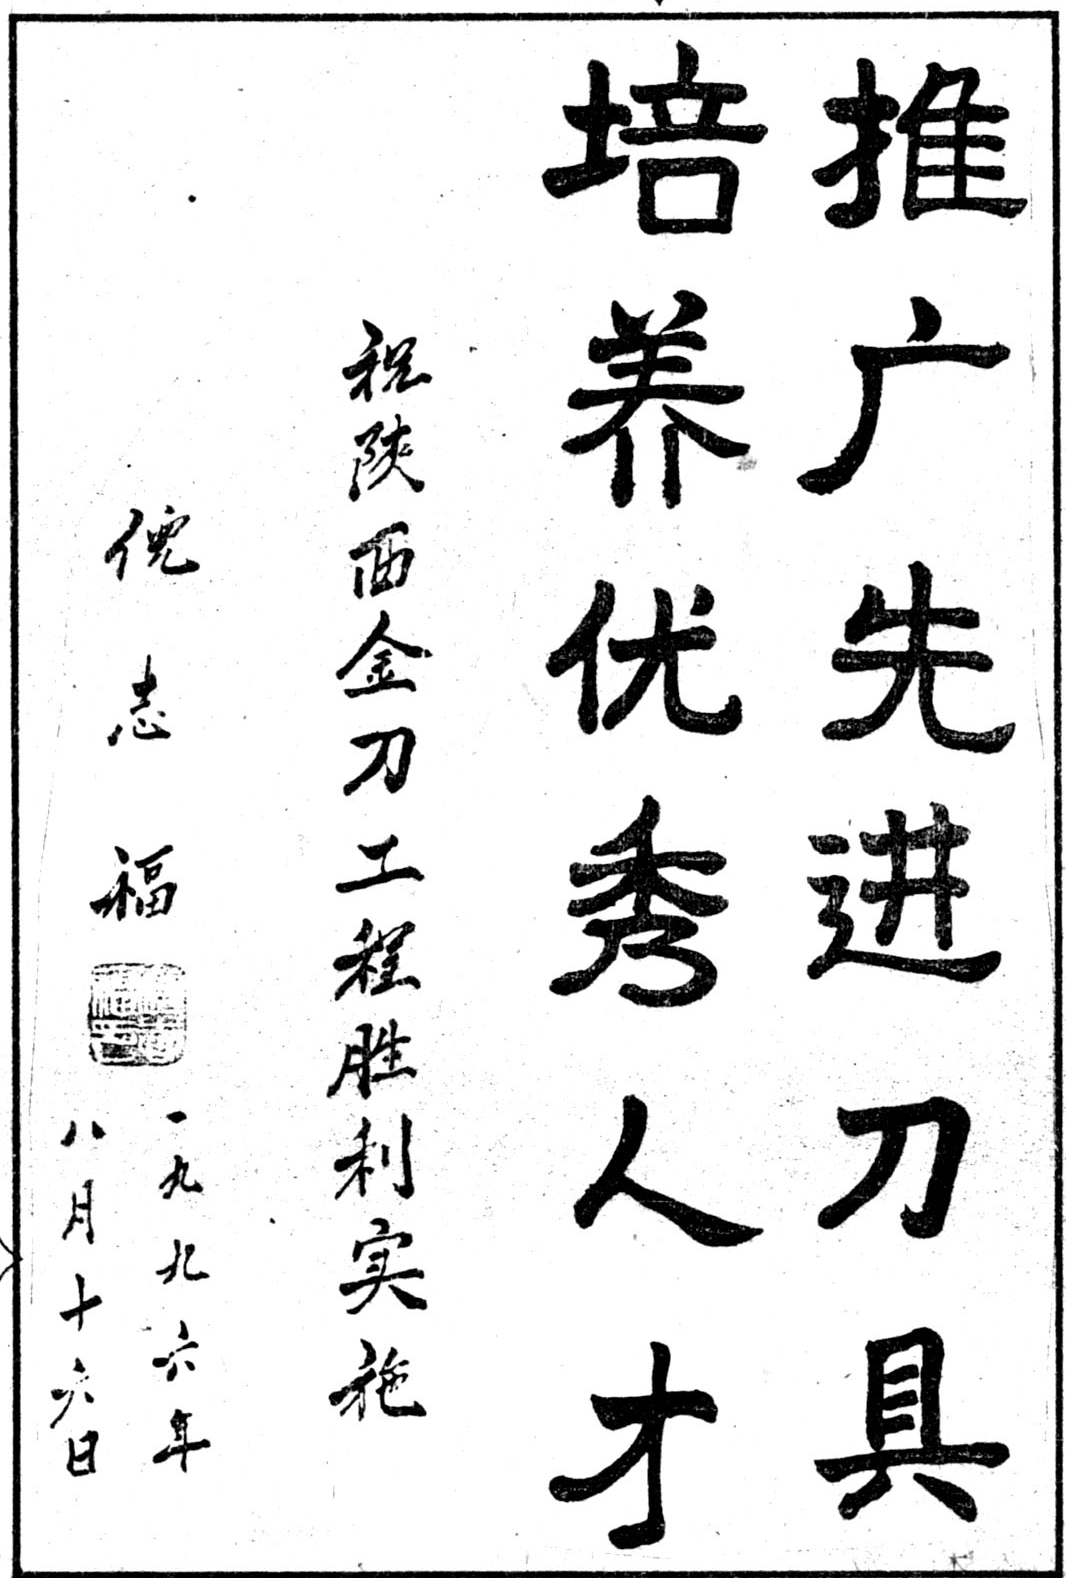 推广先进刀具
培养优秀人才
祝陕西金刀工程胜利实施
倪志福
一九九六年
八月十六日